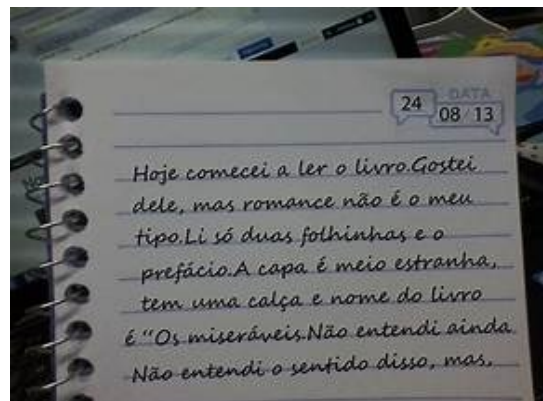 24
DATA
08/13
Hoje comecei a ler o livro.Gostei
dele, mas romance não é o meu
tipo.Li só duas folhinhas e o
prefácio.A capa é meio estranha,
tem uma calça e nome do livro
é "Os miseráveis.Não entendi ainda.
Não entendi o sentido disso, mas,